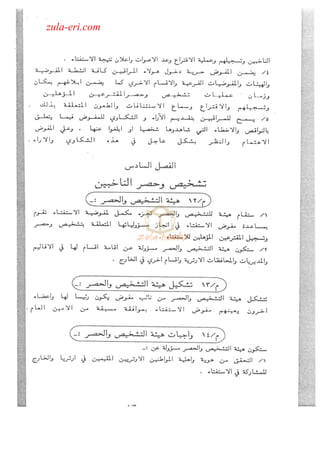 zula-eri.com
الناخبين وتسجيلهم وعملية الاقتراع وعد الاصوات واعلان نتيجة الاستفتاء .
٤/ يضمن المفوض حرية دخول هؤلاء المراقبين كافة انشطة المفوضية
والهيئات والمفوضيات الفرعية والاقسام الاخرى كما يضمن ابلاغهم بمكان
وزمان عمليات تشخيص وحصر المقترعين المؤهلين
وتسجيلهم والاقتراع وسماع الاستئنافات والطعون المتعلقة بذلك .
٥/ يسمح للمراقبين بتقديم الآراء و الشكاوي للمفوض فيما يتعلق
بالنواقص والاخطاء التي شاهدوها شخصيا او ابلغوا عنها . وعلي المفوض
الاهتمام والنظر بشكل عاجل في هذه الشكاوي والاراء .
الفصل السادس
تشخيص وحصر الناخبين
م/١٢ هيئة التشخيص والحصر :ـ
١/ ستقام هيئة للتشخيص والحصر كجزء مكمل لمفوضية الاستفتاء تقوم
بمساعدة مفوض الاستفتاء في انجاز مسؤولياتها المتعلقة بتشخيص وحصر
وتسجيل المقترعين المؤهلين للاستفتاء
٢/ ستكون هيئة التشخيص والحصر مسؤولة عن اقامة اقسام لها في الاقاليم
والمديريات والمحافظات الارترية واقسام اخرى في الخارج .
م/١٣ تشكيل هيئة التشخيص والحصر :ـ
تتشكل هيئة التشخيص والحصر من نائب مفوض يكون رئيسا لها واعضاء
آخرون يعينهم مفوض الاستفتاء بموافقة مسبقة من الامين العام
م/١٤ واجبات هيئة التشخيص والحصر :ـ
ستكون هيئة التشخيص والحصر مسؤولة عن :ـ
١/ التحقق من هوية واهلية المواطنين الارتريين المقيمين في ارتريا والخارج
للمشاركة في الاستفتاء .